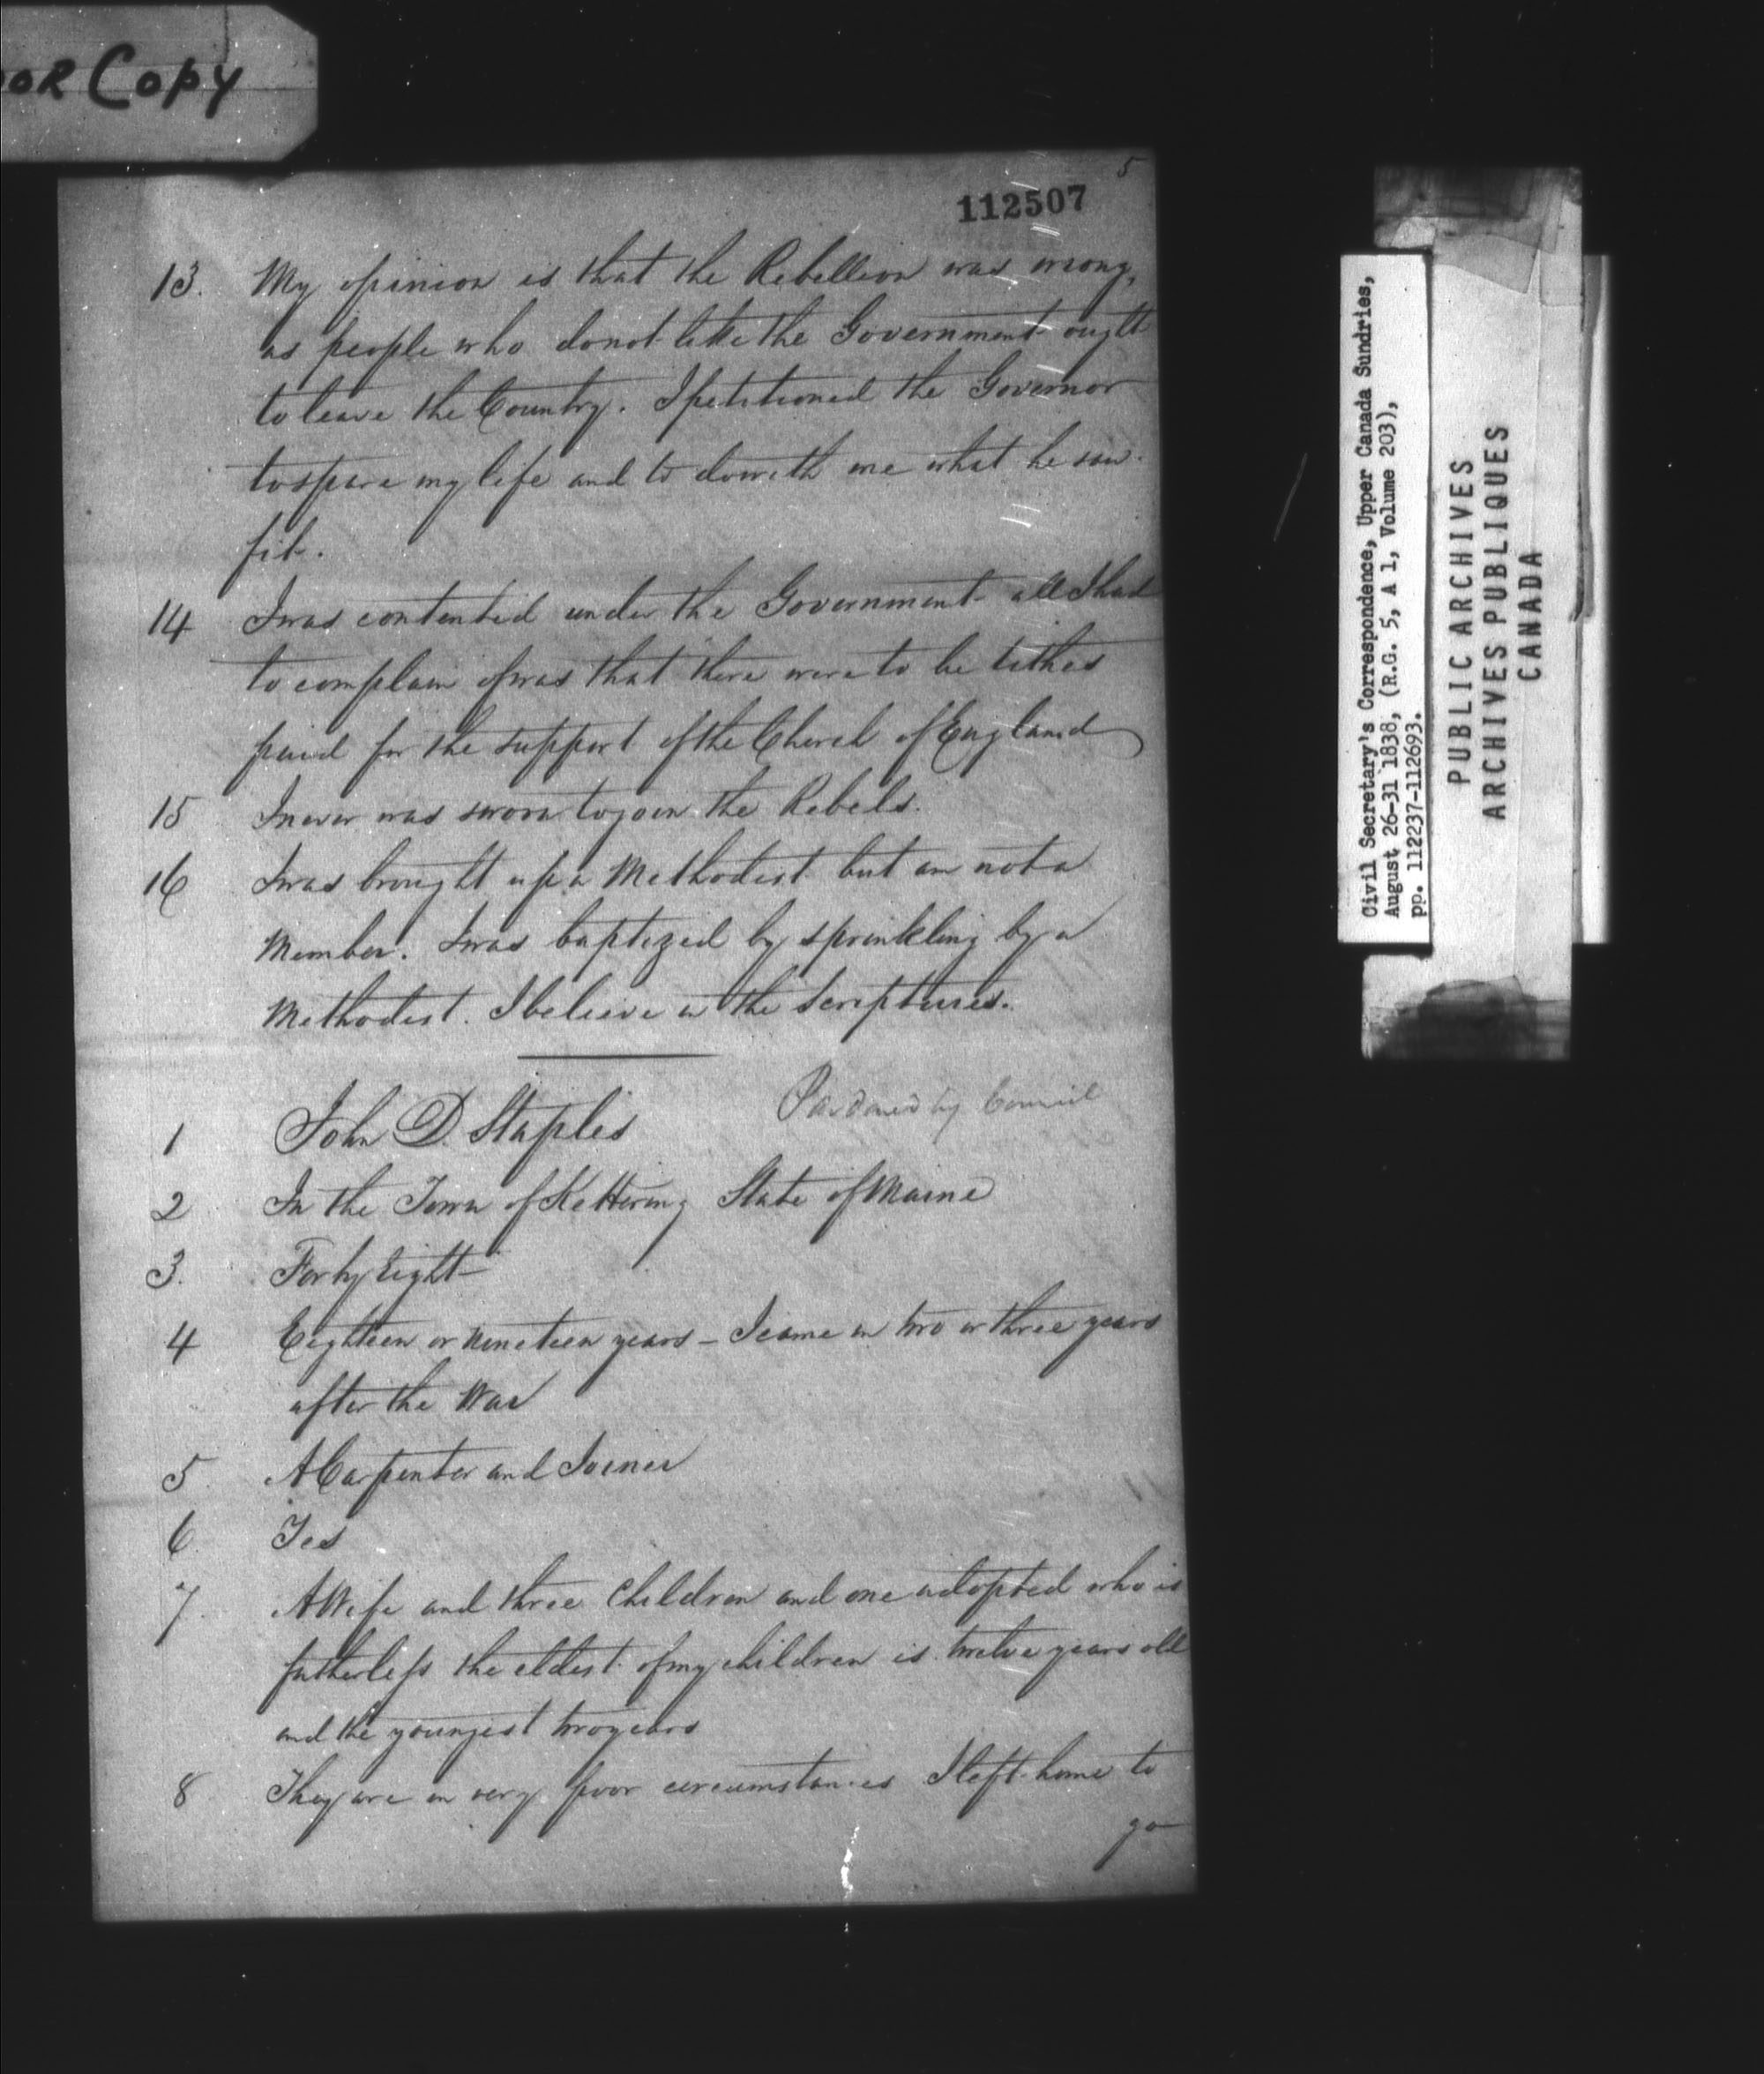 OOR COPY
5
112507
13. My opinion is that the Rebellion was wrong,
as people who do not like the Government ought
to leave the Country. I petitioned the Governor
to spare my life and to do with me what he saw
fit.
14 I was contented under the Government all I had
to complain of was that there were to be tithes
paid for the support of the Church of England
15 I never was sworn to join the Rebels.
16 I was brought up a Methodist but am not a
Member. I was baptized by sprinkling by a
Methodist. I beleive in the Scriptures.
Pardoned by Council
1 John D. Staples
2 In the Town of Kettering State of Maine
3. Forty Eight
4 Eighteen or nineteen years – I came in two or three years
after the War
5. A Carpenter and Joiner
6. Yes
7. A Wife and three Children and one adopted who is
fatherless the eldest of my children is twelve years old
and the youngest two years
8 They are in very poor circumstances I left home to
go
Civil Secretary's Correspondence, Upper Canada Sundries,
August 26-31 1838, (R.G. 5, A 1, Volume 203),
pp. 112237-112693.
PUBLIC ARCHIVES
ARCHIVES PUBLIQUES
CANADA